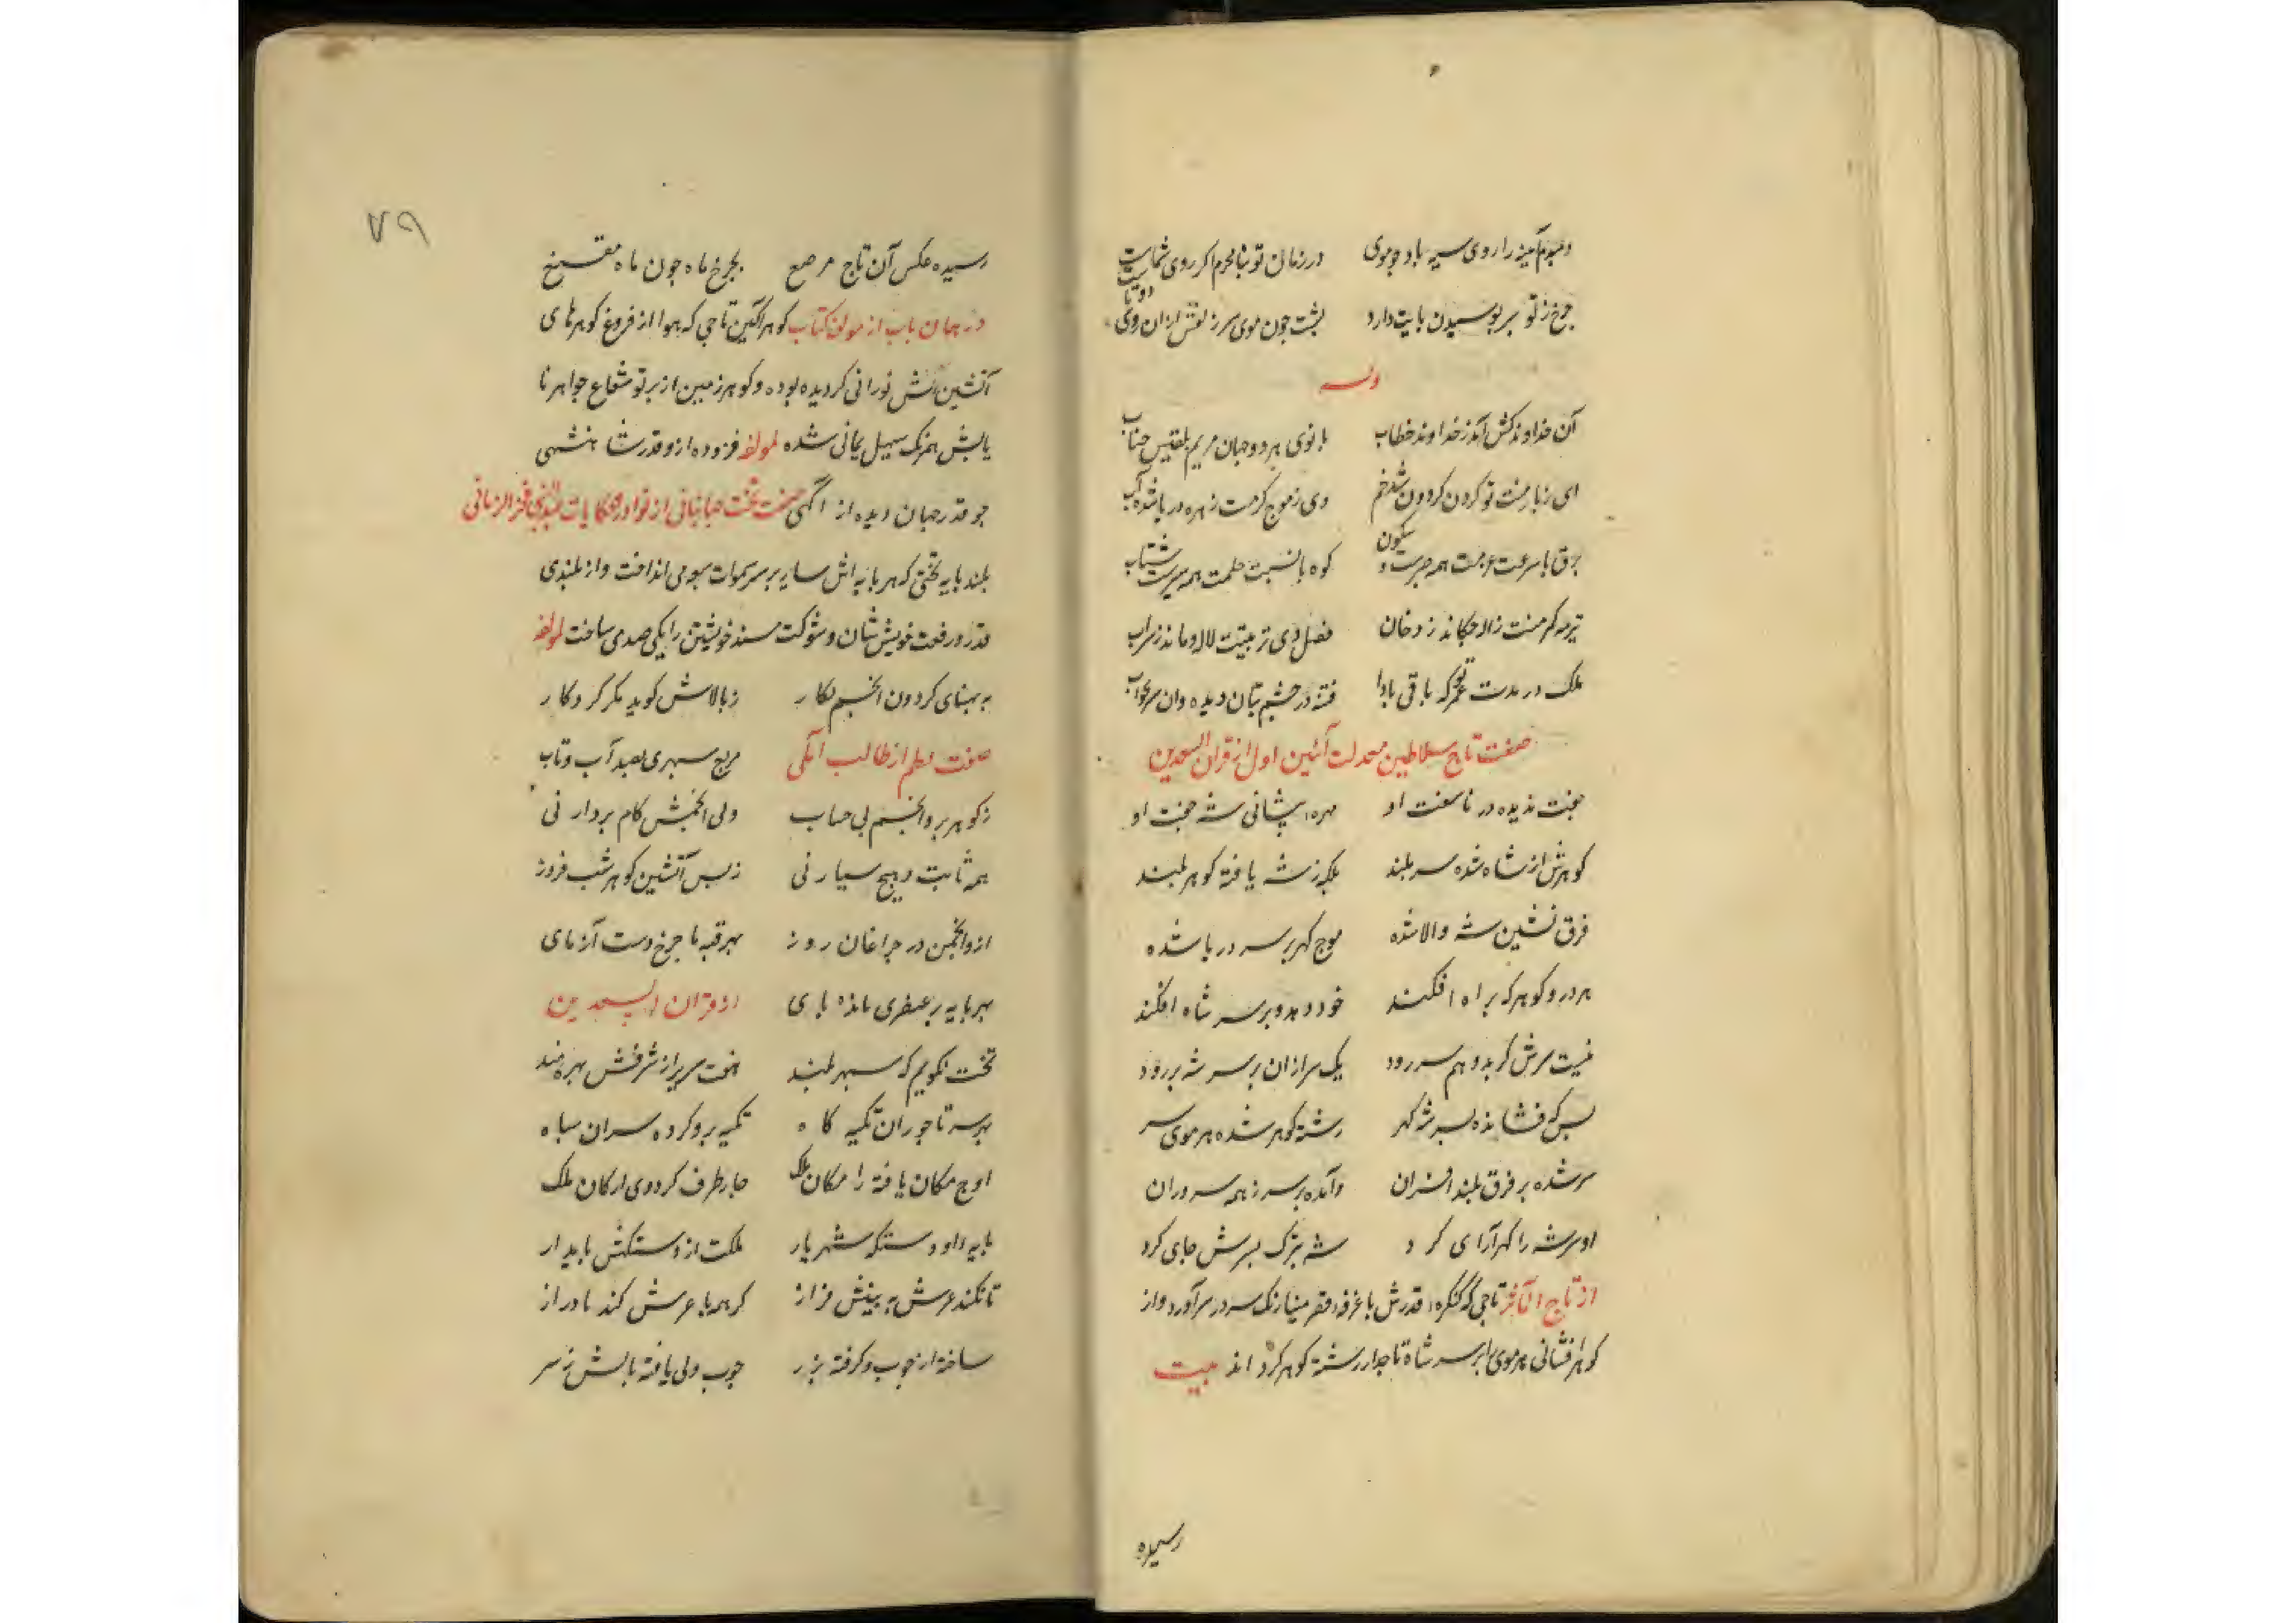 دمبدم آینه را روی سیه باد چو موی در زمان تو بنامحرم اکر روی نماست
چرخ ز تو بر بوسیدن پایت دارد پشت چون موی سر زلفش ازان روی دوتاست
وله
آن خداوند کش آمد ز خداوند خطاب بانوی هر دو جهان مریم بلقیس جناب
ای ز بار منت تو کردن کردون شده خم وی ز موج کرمت زهره دریا شده آب
برق با سرعت عزمت همه صبرست و سکون کوه با نسبت حلمت همه سیرست شتاب
تربیت کرمنت ژاله چکاند ز دخان فصل دی تربیتت لاله دماند ز سراب
ملک در مدت عمر تو که باقی بادا فتنه در چشم بتان دیده و آن هم بخواب
صفت تاج سلاطین معدلت آئین اول از قران السعدین
جفت ندیده در ناسفت او مهره پیشانی شه جفت او
کوهرش از شاه شده سر بلند بلکه ز شه یافته کوهر بلند
فرق نشین شه والا شده موج کهر بر سر دریا شده
هر در و کوهر که براه افکند خود دهد و بر سر شاه افکند
نیست سرش کر بدو هم سر رود یک سر ازان بر سر شه بر رود
بس که فشانده بسر شه کهر رشته کوهر شده هر موی سر
سر شده بر فرق بلند افسران وآمده بر سر ز همه سروران
او سر شه را کهر آرای کرد شه بزرک بسرش جای کرد
از تاج المآثر تاجی که کنکره قدرش با غرفه قصر مینا رنک سر در سر آورد و از
کوهر افشانی هر موی بر سر شاه تاجدار رشته کوهر کرد اند بیت
رسیده
۷۹
رسیده عکس آن تاج مرصع بچرخ ماه چون ماه مقنع
در همان باب از مولف کتاب کوهر آکین تاجی که هوا از فروغ کوهرهای
آتشین اش نورانی کردیده بوده و کوهر زمین از پرتو شعاع جواهر نا
یابش همرنک سهیل یمانی شده لمولفه فزوده ازو قدر شاهنشهی
چو قدر جهان دیده از آکهی صفت تخت جهانبانی از نوادر الحکایات عبدالنبی فخرالزمانی
بلند پایه تختی که هر پایه اش سایه بر سر سموات سبع می انداخت و از بلندی
قدر و رفعت خویش شان و شوکت مسند خویشتن را یکی صد می ساخت لمولفه
به پهنای کردون انجم نکار ز بالاش کوید مکر کردکار
صفت نظم از طالب آملی مربع سپهری بصد آب و تاب
ز کوهر برو انجم بی حساب ولی انجمش کام بردار نی
همه ثابت و هیچ سیار نی ز بس آتشین کوهر شب فروز
ازو انجمن در چراغان روز بهر قبه با چرخ دست آزمای
بهر پایه بر عنصری مانده پای از قران السعدین
تخت نکویم که سپهر بلند هفت سریر از شرفش بهره مند
بر سر تاجوران تکیه کاه تکیه برو کرده سران سپاه
اوج مکان یافته را مکان ملک چار طرف کرد وی ارکان ملک
پایه داور دستکه شهریار ملکت از دستکهش پایدار
تا نکند عرش به بینش فراز کر همه با عرش کند پا دراز
ساخته از چوب و کرفته بزر چوب ولی یافته بالش ز سر